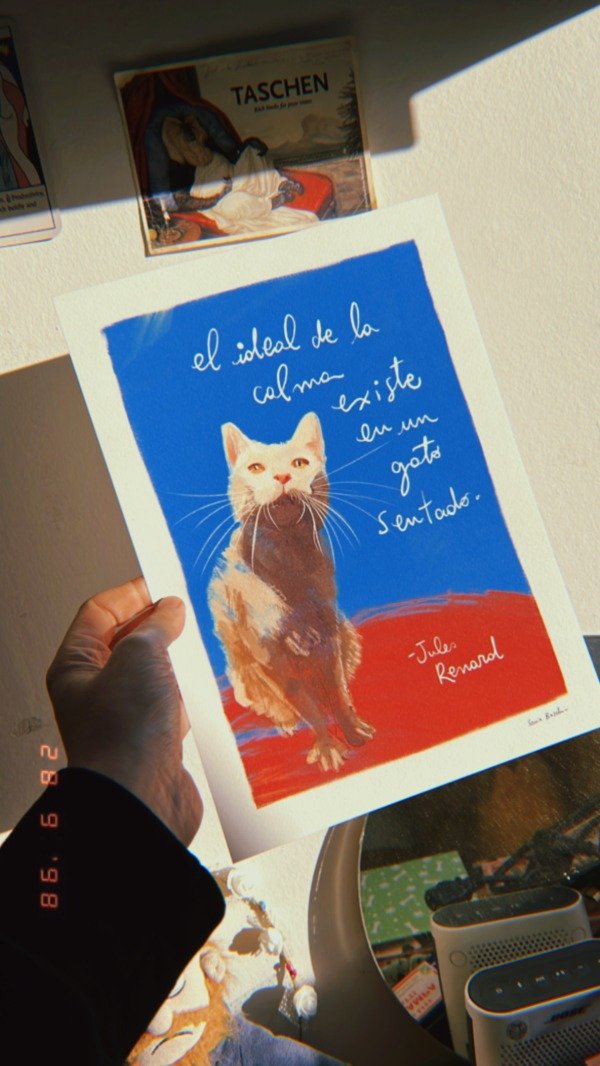 TASCHEN
el ideal de la
calma
existe
en un
gato
sentado.
-Jules
Renard
28 9 '98
BOSE